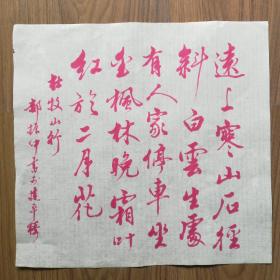 遠上寒山石徑
斜白雲生處
有人家停車坐
愛楓林晚霜叶
紅於二月花
杜牧山行